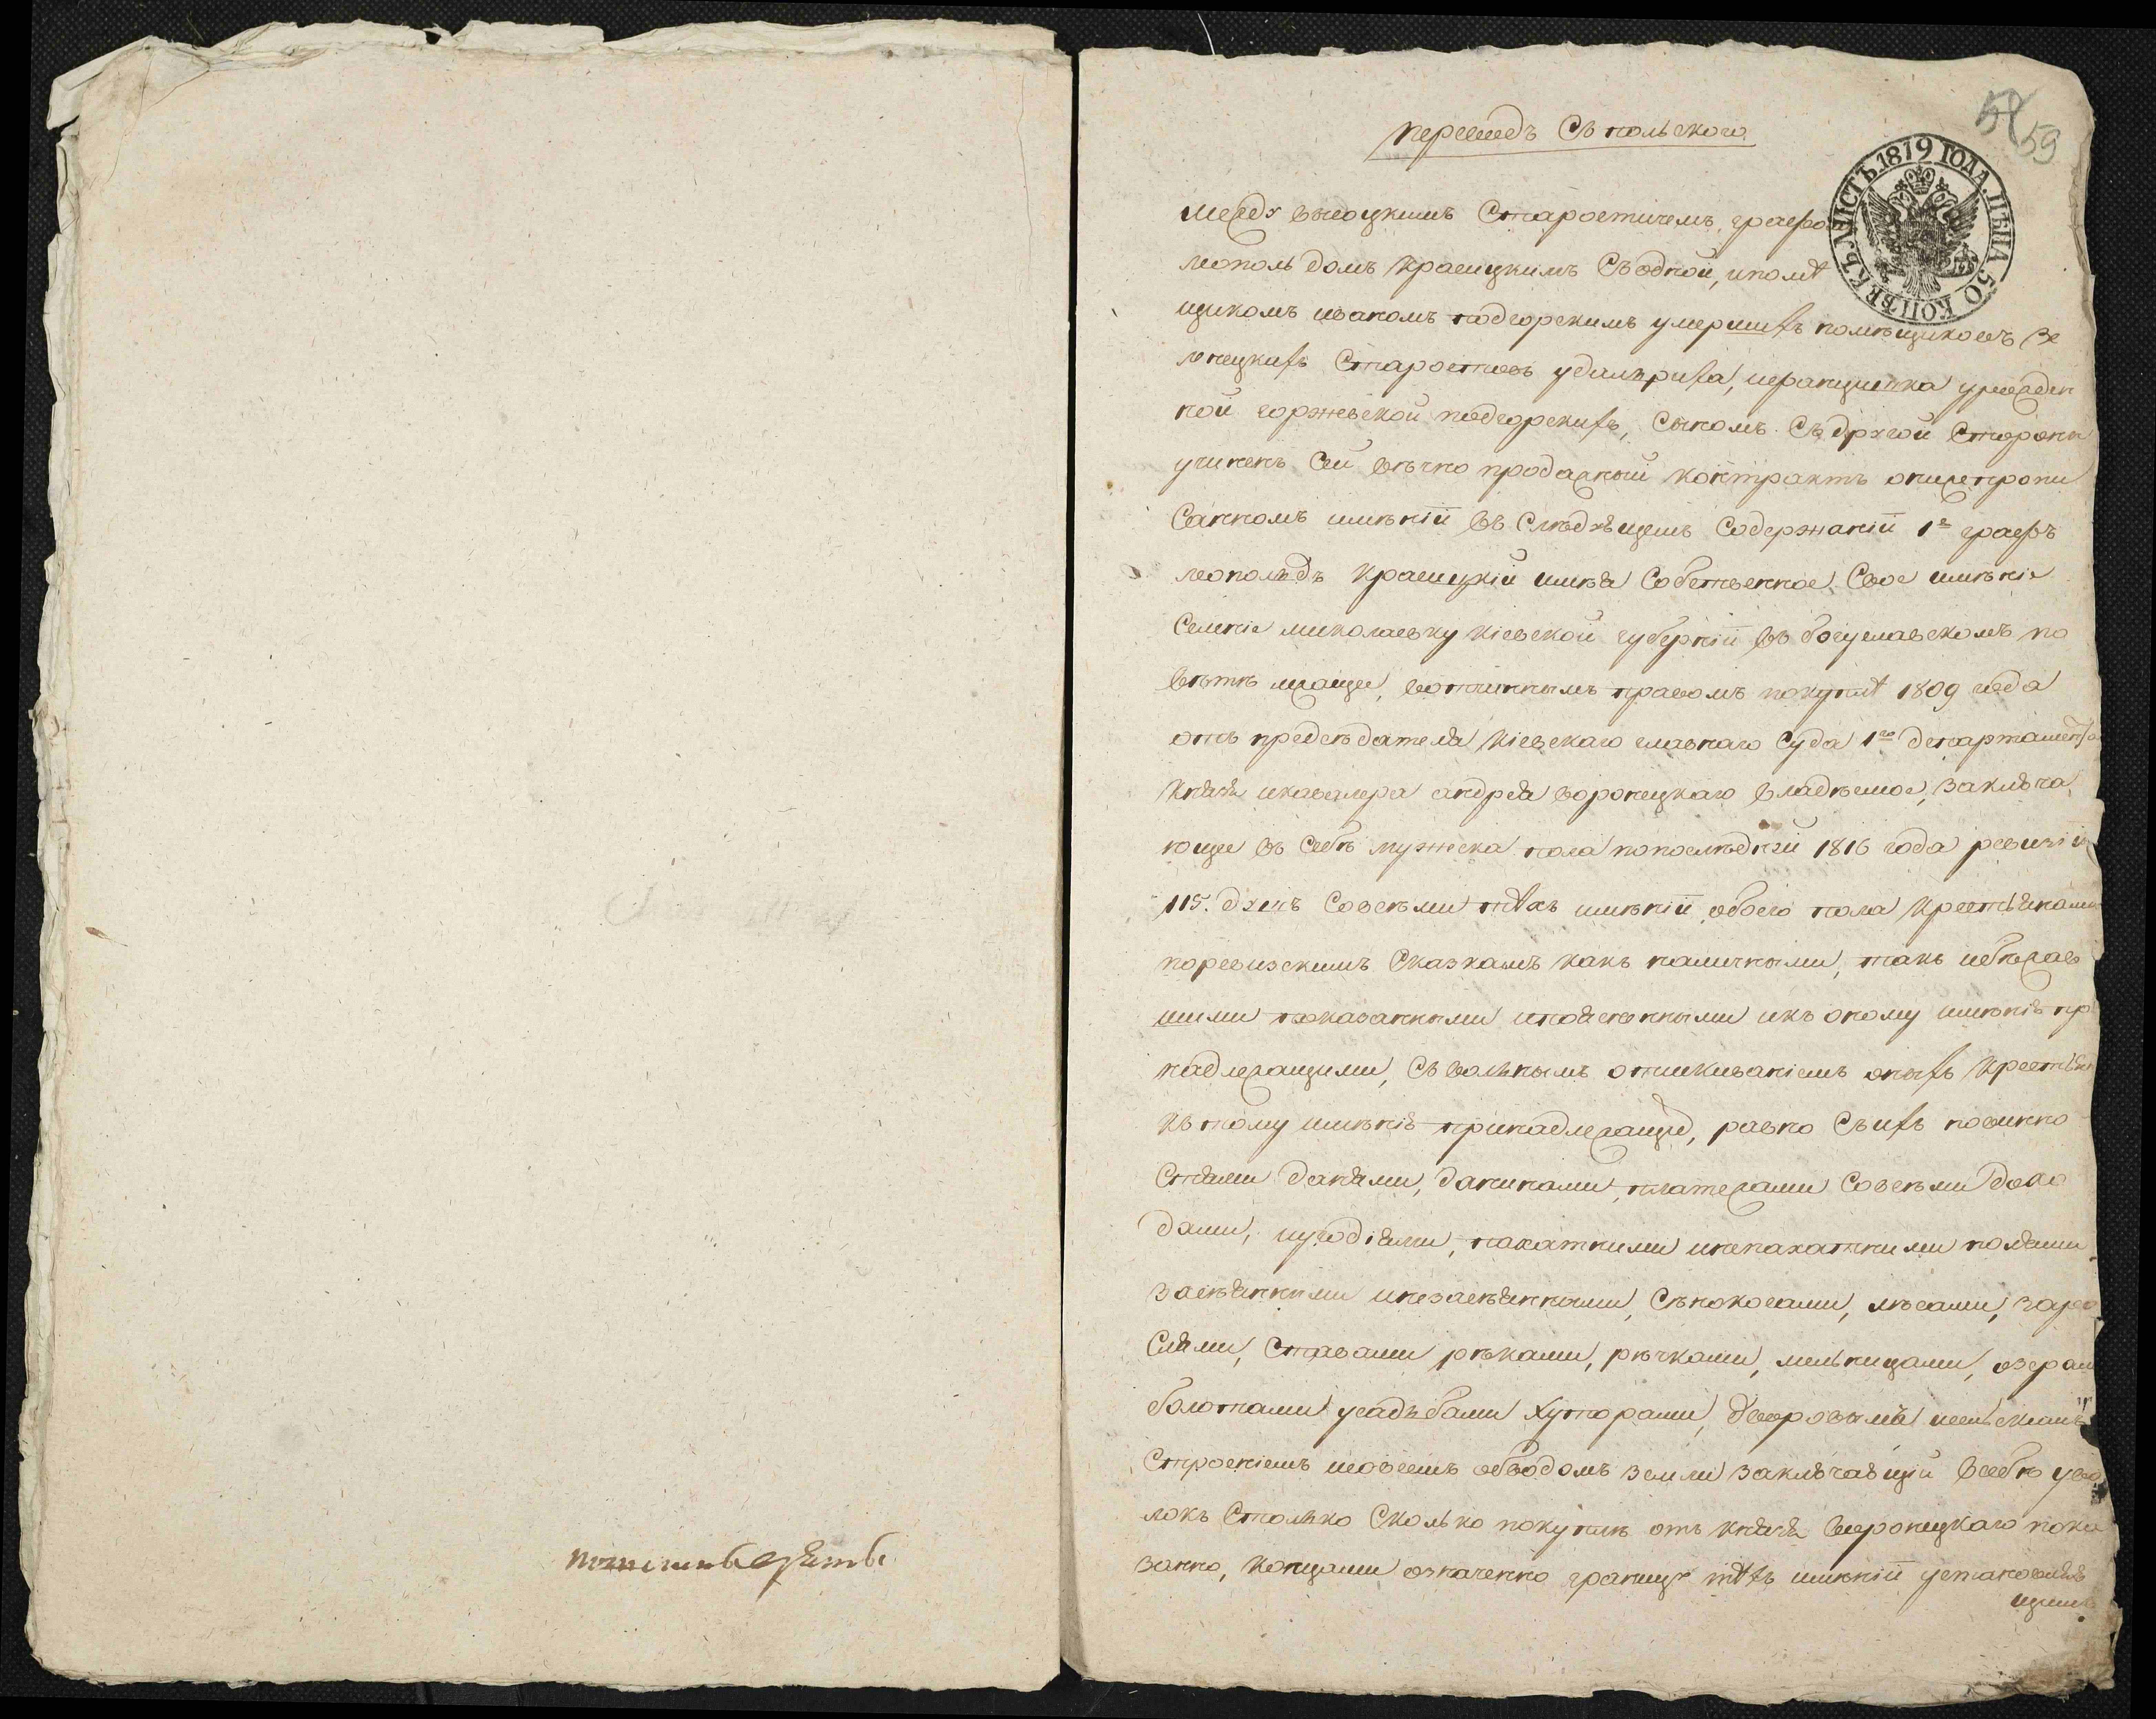 58
59
переводъ Съ польского
КЪ ЛИСТЪ. 1819 ГОДА. ЦѢНА 50 КОПѢЕКЪ
между Старостичемъ, графом
леополь домъ красицкимъ Съ одной, и помѣ
щикомъ иваномъ подгорскимъ умершихъ помѣщиковъ Зе
лнецкихъ Старостовъ и францишка урожден
ной горжевской подгорскихъ, Сыномъ Съ другой Стороны
учиненъ Сей вѣчно продажный контрактъ о нижепропи
Санномъ имѣнїи въ Слѣдующемъ Содержанїи 1е графъ
леопольдъ красицкїй имѣя Собственное Свое имѣнїе
Селенїе миколаевку кїевской губернїи въ богуславскомъ по
вѣтѣ лежащее, вотчиннымъ правомъ покупкѣ 1809 года
отъ предсѣдателя кїевскаго главнаго Суда 1го департамента
князя и кавалера андрея воронецкаго владѣемое, заключа
ющее въ Себѣ мужеска пола по послѣдней 1816 года ревизїи
115. душъ Совсѣми тѣхъ имѣнїи обоего пола крестьянами
по ревизскимъ Сказкамъ какъ наличными, такъ и бѣжав
шими показанными и къ оному имѣнїю пр
надлежащими, Съ вольнымъ отискиванїемъ оныхъ крестьян
къ тому имѣнїю принадлежащих, равно Съ ихъ повинно
Стями данями, данинами, платежами Совсѣми дохо
дами, иугодїями, пахатними и непахатними полями
засѣянними и незасѣянными, Сѣнокосами, лѣсами, заро
Слями, Ставами рѣками, рѣчками, мельницами, озерам
болотами усадьбами хуторами, дворовымъ и сельскимъ
Строенїемъ и всемъ обводомъ земли заключающїй в себѣ уво
локъ Столько Сколько покупкѣ отъ князя Воронецкаго пока
занно, концами означенно границу тѣхъ имѣнїи установля
ющим